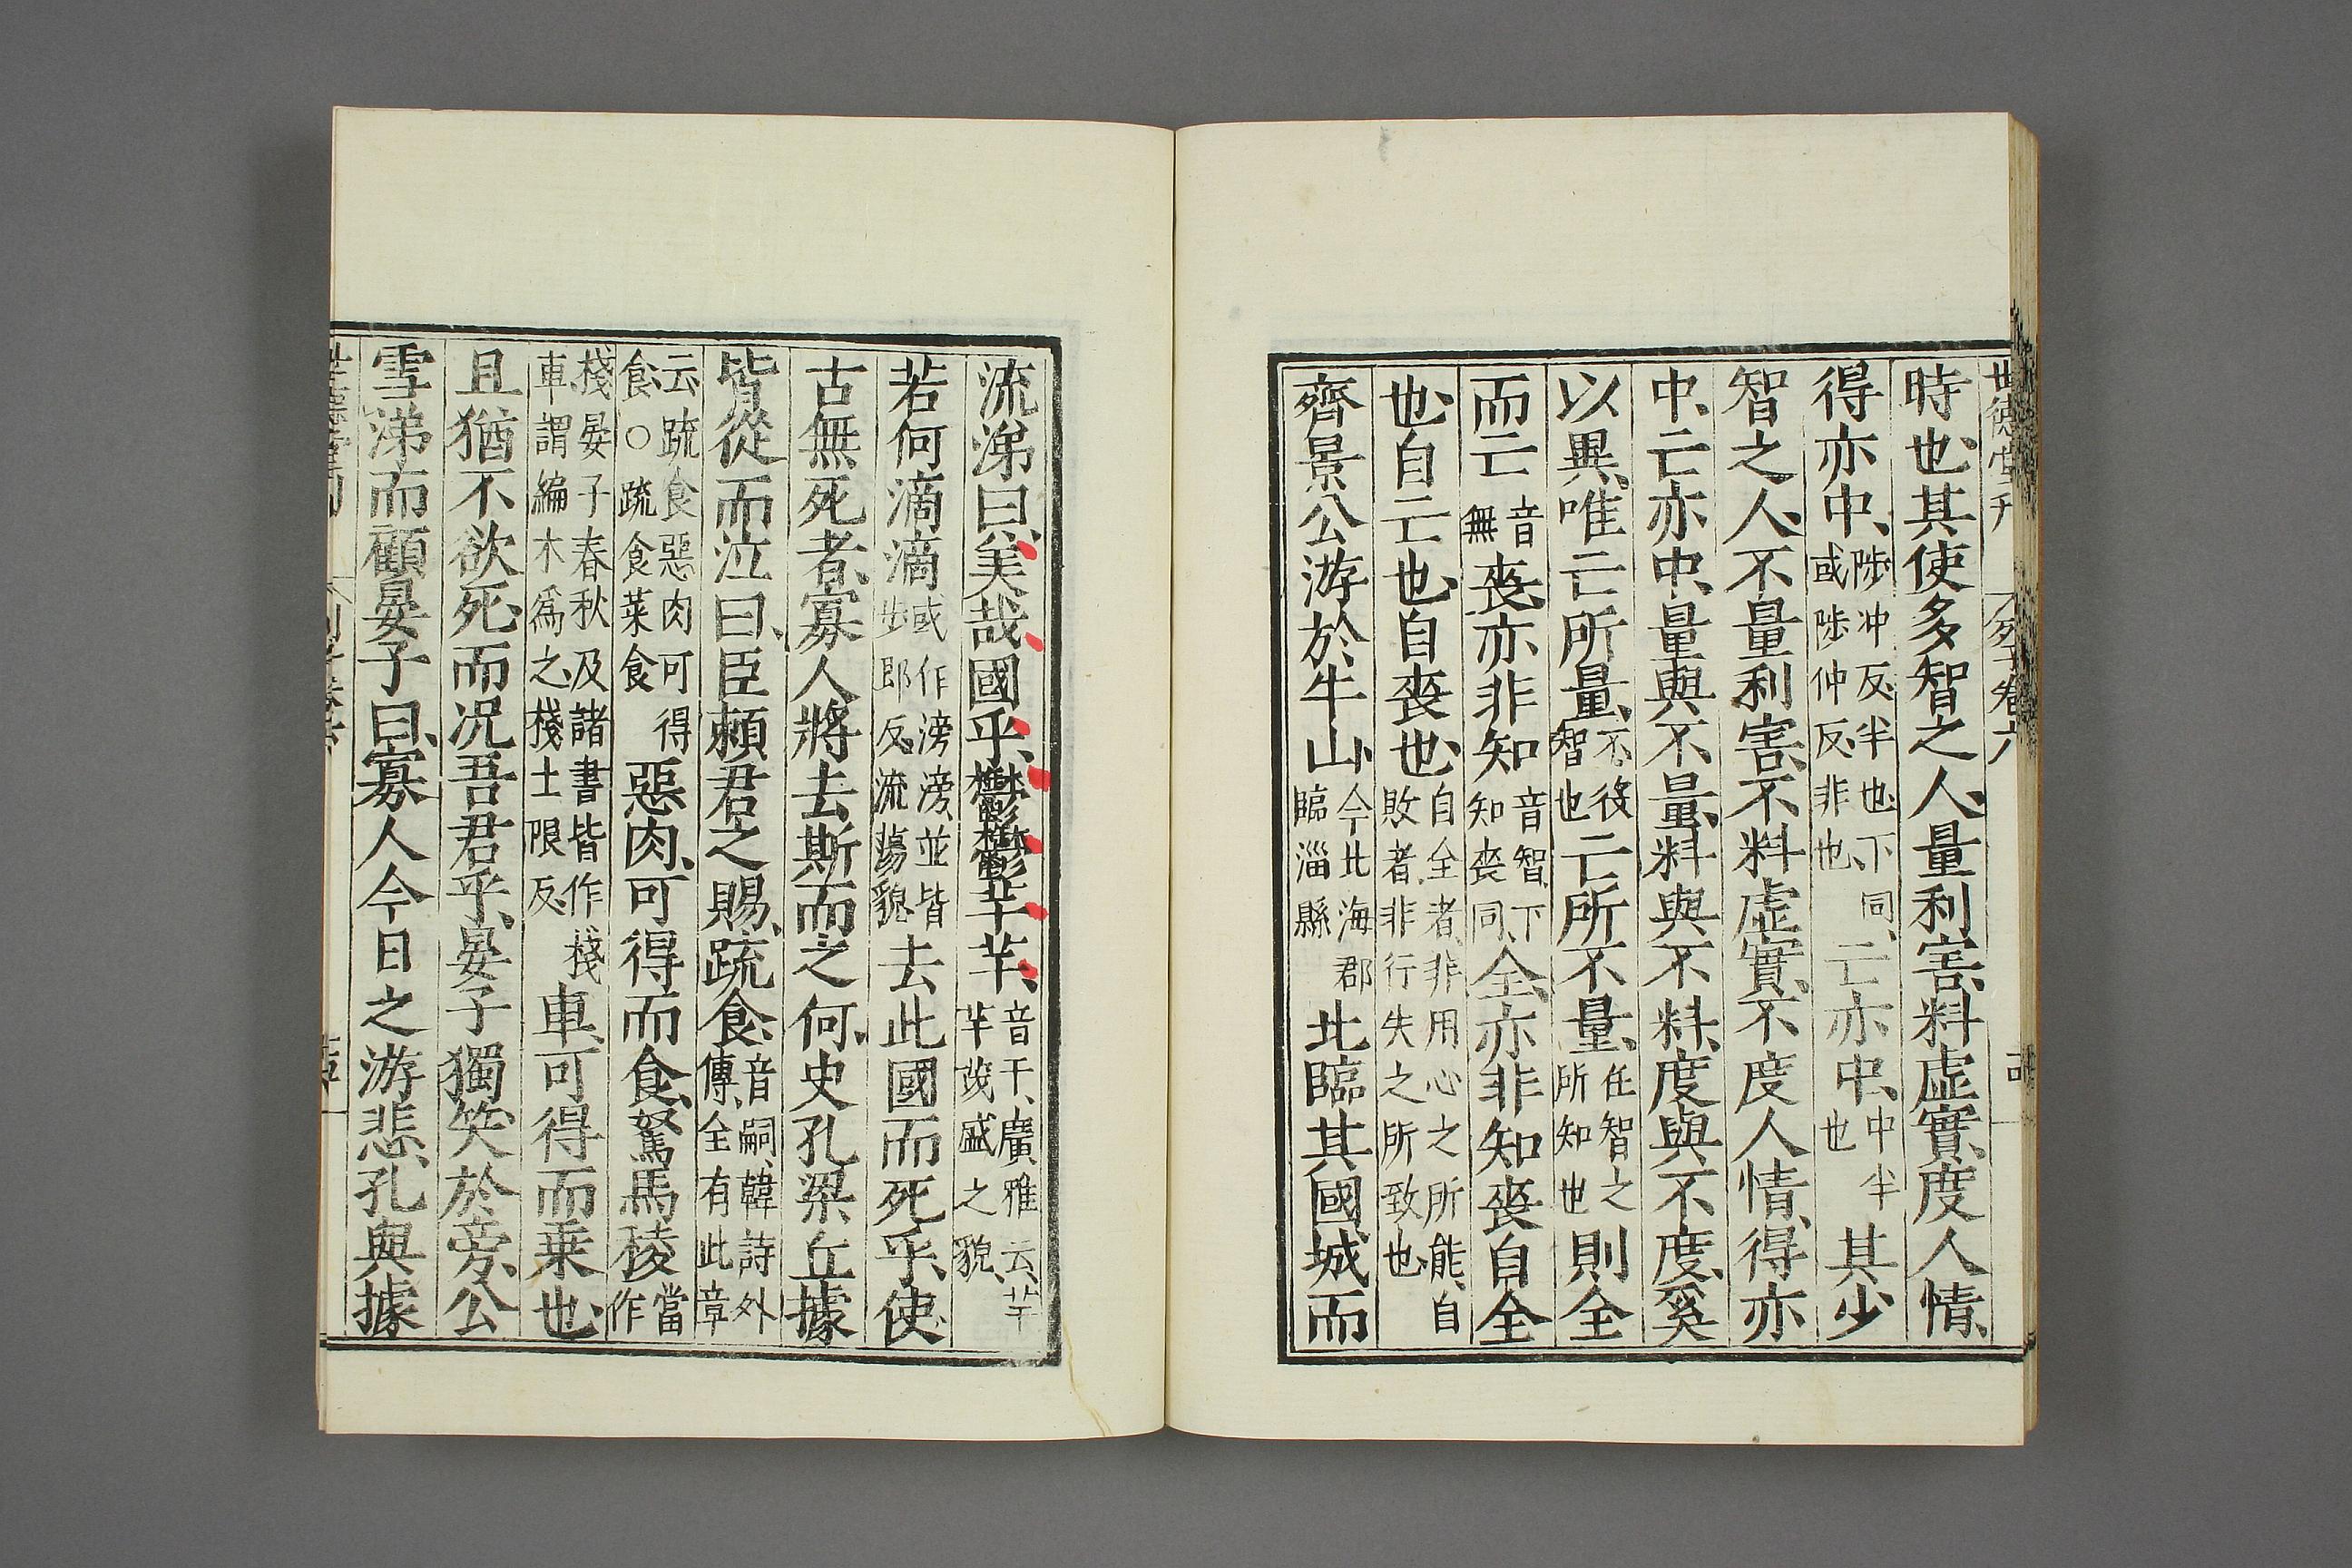 世德堂刊 列子卷六
時也、其使多智之人、量利害、料虛實、度人情、
得亦中、陟冲反、半也、下同、或陟仲反、非也、亡亦中、中半也其少
智之人、不量利害、不料虛實、不度人情、得亦
中、亡亦中、量與不量、料與不料、度與不度、奚
以異、唯亡所量、不役智也亡所不量、任智之所知也則全
而亡音無喪、亦非知音智、下知喪同、全、亦非知喪、自全
也、自亡也、自喪也、自全者、非用心之所能、自敗者、非行失之所致也、
齊景公游於牛山、今北海郡臨淄縣北臨其國城而
流涕曰、美哉、國乎、鬱鬱芊芊、音千、廣雅云、芊芊茂盛之貌、
若何滴滴或作滂滂、並皆步郎反、流蕩貌去此國而死乎、使
古無死者、寡人將去斯而之何、史孔梁丘據
皆從而泣曰、臣賴君之賜、疏食、音嗣、韓詩外傳、全有此章
云疏食惡肉可得食、○疏食菜食惡肉、可得而食、駑馬稜當作
棧、晏子春秋及諸書皆作棧車、謂編木爲之、棧士限反、車、可得而乗也、
且猶不欲死、而况吾君乎、晏子獨笑於旁、公
雪涕而顧晏子曰、寡人今日之游悲、孔與據